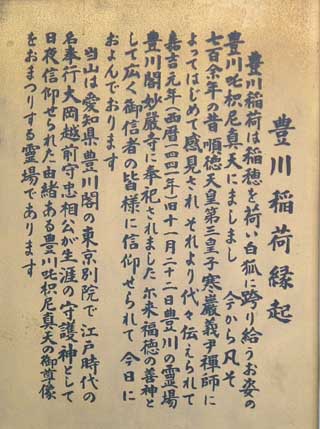 豊川稲荷縁起
豊川稲荷は稲穂を荷い白狐に跨り給うお姿の
豊川吒枳尼真天にましまし 今から凡そ
七百余年の昔 順徳天皇第三皇子寒巖義尹禅師に
よってはじめて感見され それより代々伝えられて
嘉吉元年(西暦一四四一年)旧十一月二十二日豊川の霊場
豊川閣妙厳寺に奉祀されました 尓来福徳の善神と
して広く御信者の皆様に信仰せられて 今日に
およんでおります
当山は愛知県豊川閣の東京別院で 江戸時代の
名奉行大岡越前守忠相公が生涯の守護神として
日夜信仰せられた由緒ある豊川吒枳尼真天の御尊像
をおまつりする霊場であります